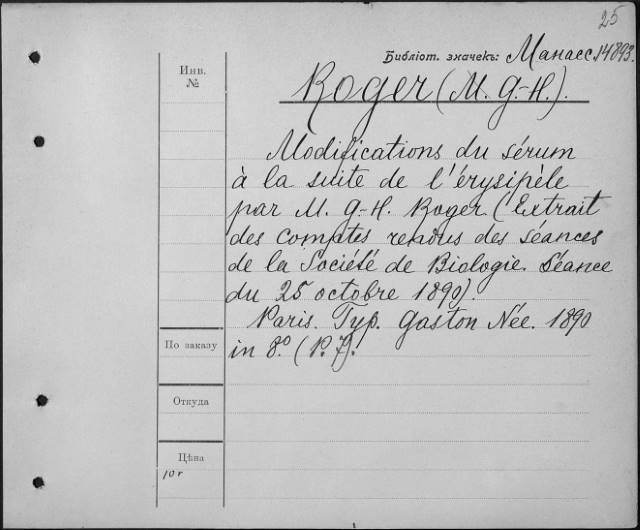 25
Библіот. значекъ: Манасс. 14893.
Инв.
№
Roger (M. G.-H).
Modifications du sérum
à la suite de l'érysipèle
par M. G.-H. Roger (Extrait
des comptes rendus des séances
de la Société de Biologie. Séance
du 25 octobre 1890).
Paris. Typ. Gaston Née. 1890
in 8º. (P. 7).
По заказу
Откуда
Цѣна
10 r